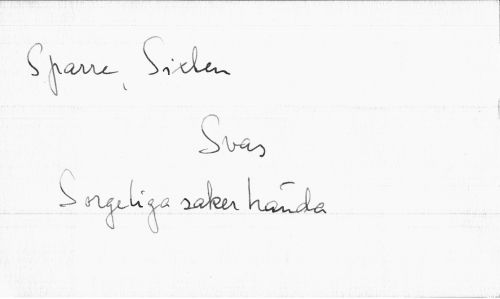 Sparre, Sixten
Svas
Sorgeliga saker hända